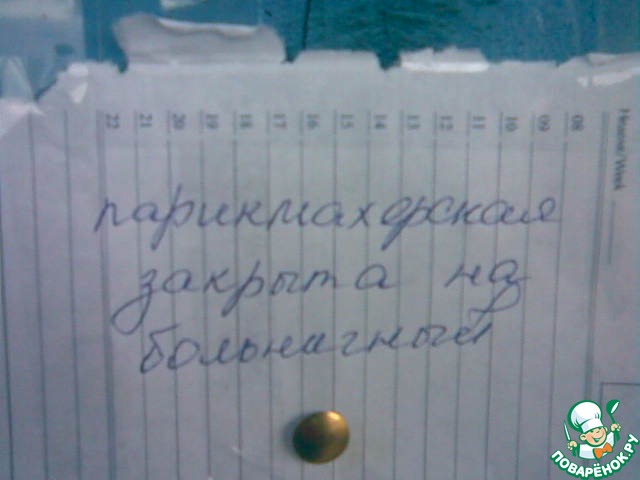 22 21 20 19 18 17 16 15 14 13 12 11 10 09 08
парикмахерская
закрыта на
больничный
ПОВАРЁНОК.РУ